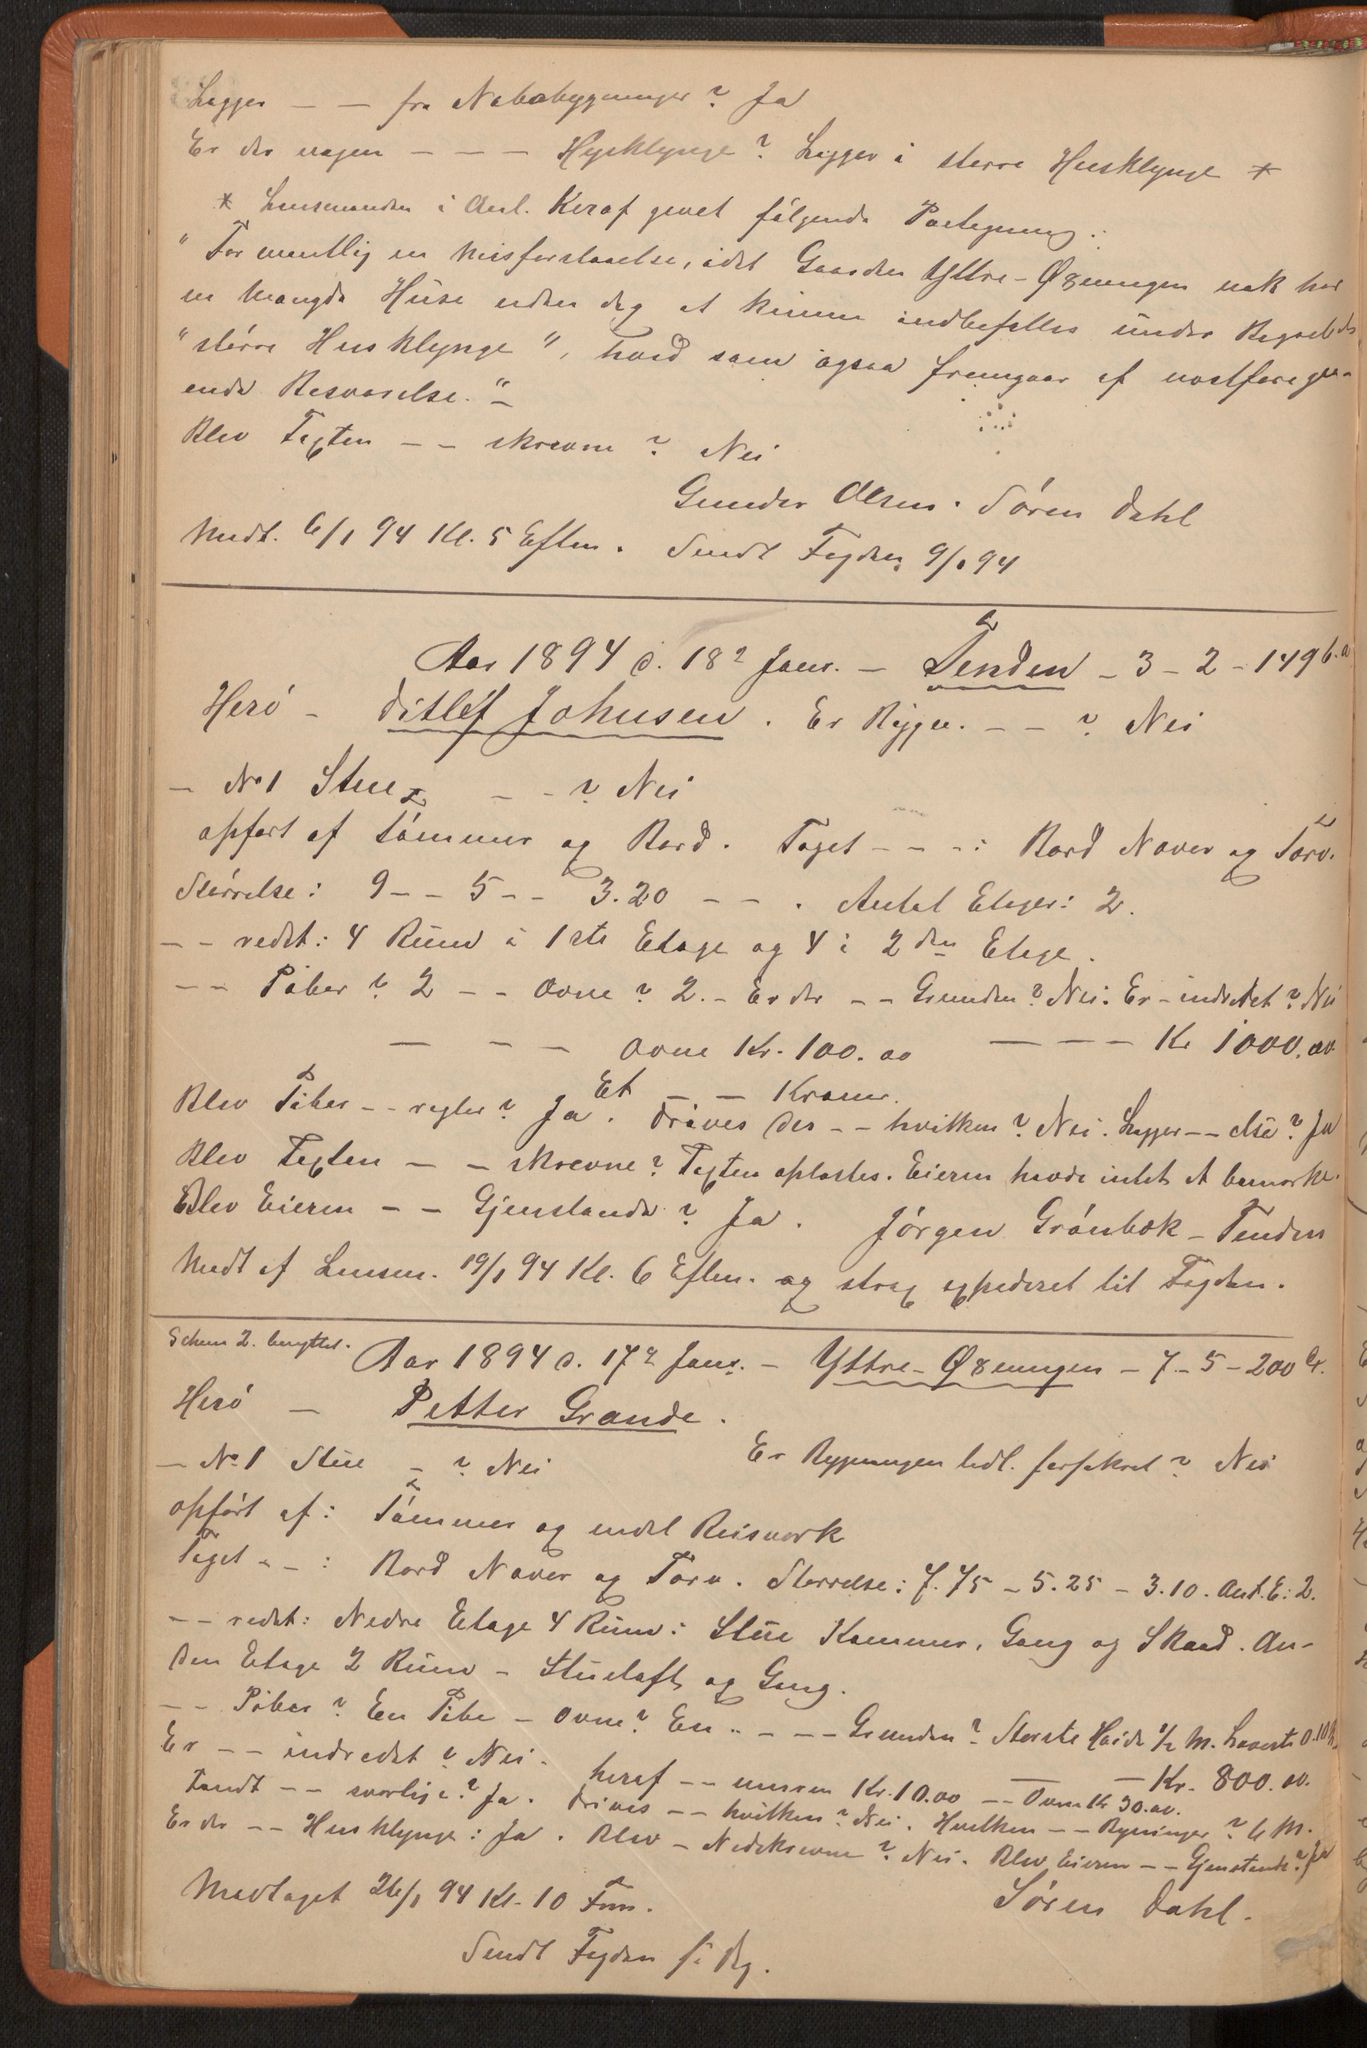 Ligger — — fra Nabobygninger? Ja
Er der nogen — — — Husklynge? Ligger i større Husklynge *
* Lensmanden i Anl. Heraf givet følgende Paategning:
"Formentlig en Misforstaaelse, idet Gaarden Yttre-Øgsningen nok har
en Mængde Huse uden dog at kunne indbefattes under Begrebet
"større Husklynge", hvad som ogsaa fremgaar af nestforegaa-
ende Besvarelse."
Blev Taxten — — skrevne? Nei
Gunder Olsen. Søren Dahl
Modt. 6/1 94 Kl. 5 Eftm. Sendt Fogden 9/1 94
Aar 1894 d. 18? Janr. — Tenden — 3 — 2 — 149 b.a
Herø — Ditlef Johnsen. Er Bygn. — — ? Nei
— No 1 Stue — — ? Nei
opført af Tømmer og Bord. Taget — — — : Bord Næver og Torv.
Størrelse: 9 — — 5 — — 3.20 — — . Antal Etager: 2.
— — redet: 4 Rum i 1ste Etage og 4 i 2den Etage.
— — Piber? 2 — — Ovne? 2. — Er der — — Grunden? Nei. Er — indredet? Nei
— — — Ovne Kr. 100.00 — — — Kr 1000.00
Et — — Kroner.
Blev Piber — — regler? Ja. Drives der — — hvilken? Nei. Ligger — — else? Ja
Blev Taxten — — skrevne? Taxten oplæstes. Eieren havde intet at bemærke.
Blev Eieren — — Gjenstande? Ja. Jørgen Grønbæk — Tenden
Modt af Lensm. 19/1 94 Kl. 6 Eftm. og strax expederet til Fogden.
Schema 2. benyttet. Aar 1894 d. 17? Janr. — Yttre-Øgsningen — 7 — 5 — 200
Herø — Petter Grande.
— No 1 Stue — ? Nei Er Bygningen tidl. forsikret? Nei
opført af: Tømmer og endel Reisverk
Taget — — : Bord Næver og Torv. Størrelse: 7.75 — 5.25 — 3.10. Ant. E: 2.
— — redet: Nedre Etage 4 Rum: Stue Kammer, Gang og Skaad. An-
den Etage 2 Rum — Stueloft og Gang.
— — Piber? En Pibe — Ovne? En — — — Grunden? Største Høide ½ M. Laveste 0.10
Er — — indredet? Nei. heraf — — muren Kr. 10.00 — Ovne Kr 30.00. — Kr. 800.00.
Tandt — — svarlige? Ja. Drives — — hvilken? Nei. Hvilken — — Bygninger? 4 M.
Er der — — Husklynge: Ja. Blev — Nedskrevne? Nei. Blev Eieren — — Gjenstande? Ja
Modtaget 26/1 94 Kl. 10 Fm. Søren Dahl.
Sendt Fogden s. Dg.